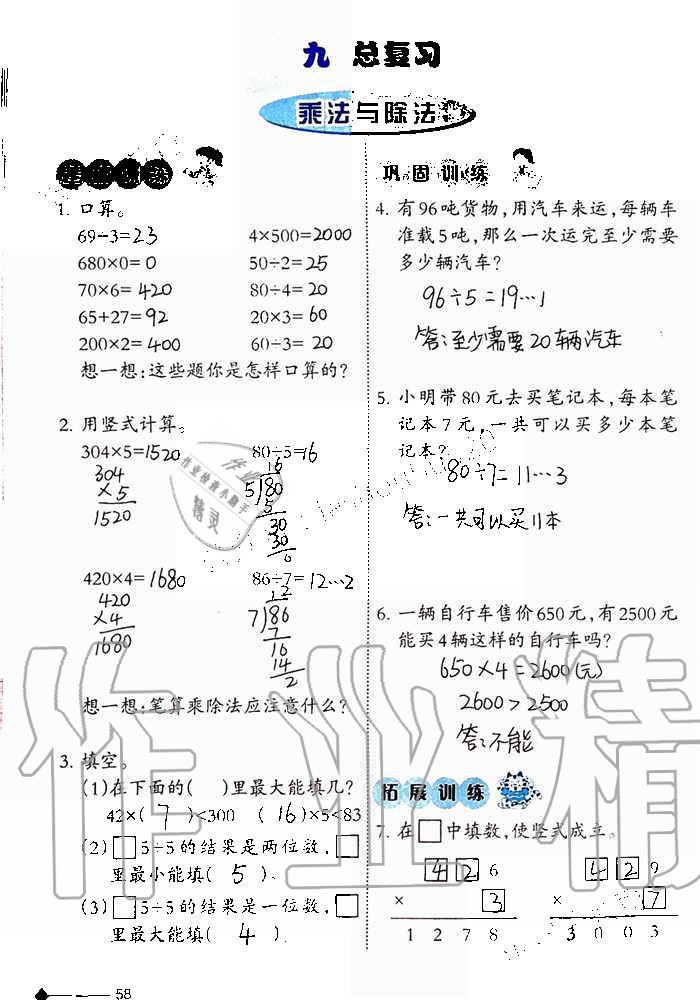 九 总复习
乘法与除法
1. 口算。
69÷3=23 4×500=2000
680×0=0 50÷2=25
70×6=420 80÷4=20
65+27=92 20×3=60
200×2=400 60÷3=20
想一想:这些题你是怎样口算的?
2. 用竖式计算。
304×5=1520 80÷5=16
304
×5
1520
16
5 80
5
30
30
0
420×4=1680 86÷7=12…2
420
×4
1680
12
7 86
7
16
14
2
想一想:笔算乘除法应注意什么?
3. 填空。
(1)在下面的( )里最大能填几?
42×(7)<300 (16)×5<83
(2)□5÷5的结果是两位数,□
里最小能填( 5 )。
(3)□5÷5的结果是一位数,□
里最大能填( 4 )
58
巩固训练
4. 有96吨货物,用汽车来运,每辆车
准载5吨,那么一次运完至少需要
多少辆汽车?
96÷5=19…1
答:至少需要20辆汽车
5. 小明带80元去买笔记本,每本笔
记本7元,一共可以买多少本笔
记本?
80÷7=11…3
答:一共可以买11本
6. 一辆自行车售价650元,有2500元
能买4辆这样的自行车吗?
650×4=2600(元)
2600>2500
答:不能
拓展训练
7. 在□中填数,使竖式成立。
4 2 6 4 2 9
× 3 × 7
1 2 7 8 3 0 0 3
作业精
作业
作业检查小助手
精灵